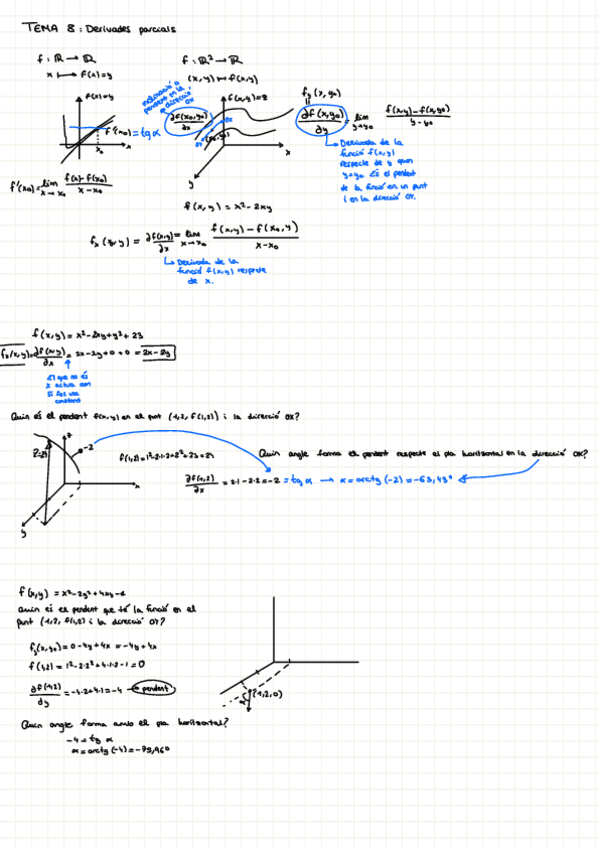 TEMA 8: Derivades parcials
f: ℝ → ℝ
x ⟼ f(x)=y
f: ℝ² → ℝ
(x,y) ⟼ f(x,y)
f(x)=y
f'(x₀) = tg α
x₀
x
f'(x₀) = lim x→x₀ f(x)-f(x₀) / x-x₀
pendent en la direcció OX
∂f(x₀,y₀)/∂x
f(x,y)=z
x
y
f_y(x,y₀)
=
∂f(x,y₀)/∂y
lim y→y₀ f(x,y)-f(x,y₀) / y-y₀
Derivada de la
funció f(x,y)
respecte de y quan
y=y₀. És el pendent
de la funció en un punt
i en la direcció OY.
f(x,y) = x²-2xy
f_x(x,y) = ∂f(x,y)/∂x = lim x→x₀ f(x,y)-f(x₀,y) / x-x₀
Derivada de la
funció f(x,y) respecte
de x.
f(x,y) = x²-2xy+y²+23
f_x(x,y)=∂f(x,y)/∂x = 2x-2y+0+0 = 2x-2y
El que no és
x actua com
si fos una
constant
Quin és el pendent f(x,y) en el punt (1,2,f(1,2)) i la direcció OX?
z
-2
x
y
f(1,2)=1²-2·1·2+2²+23=24
∂f(1,2)/∂x = 2·1-2·2=-2 = tg α → α = arctg(-2) = -63,43°
Quin angle forma el pendent respecte el pla horitzontal en la direcció OX?
f(x,y) = x²-2y²+4xy-1
Quin és el pendent que té la funció en el
punt (1,2,f(1,2)) i la direcció OY?
f_y(x,y₀) = 0-4y+4x = -4y+4x
f(1,2) = 1²-2·2²+4·1·2-1=0
∂f(1,2)/∂y = -4·2+4·1=-4 → pendent
(1,2,0)
α
Quin angle forma amb el pla horitzontal?
-4 = tg α
α = arctg(-4) = -75,96º